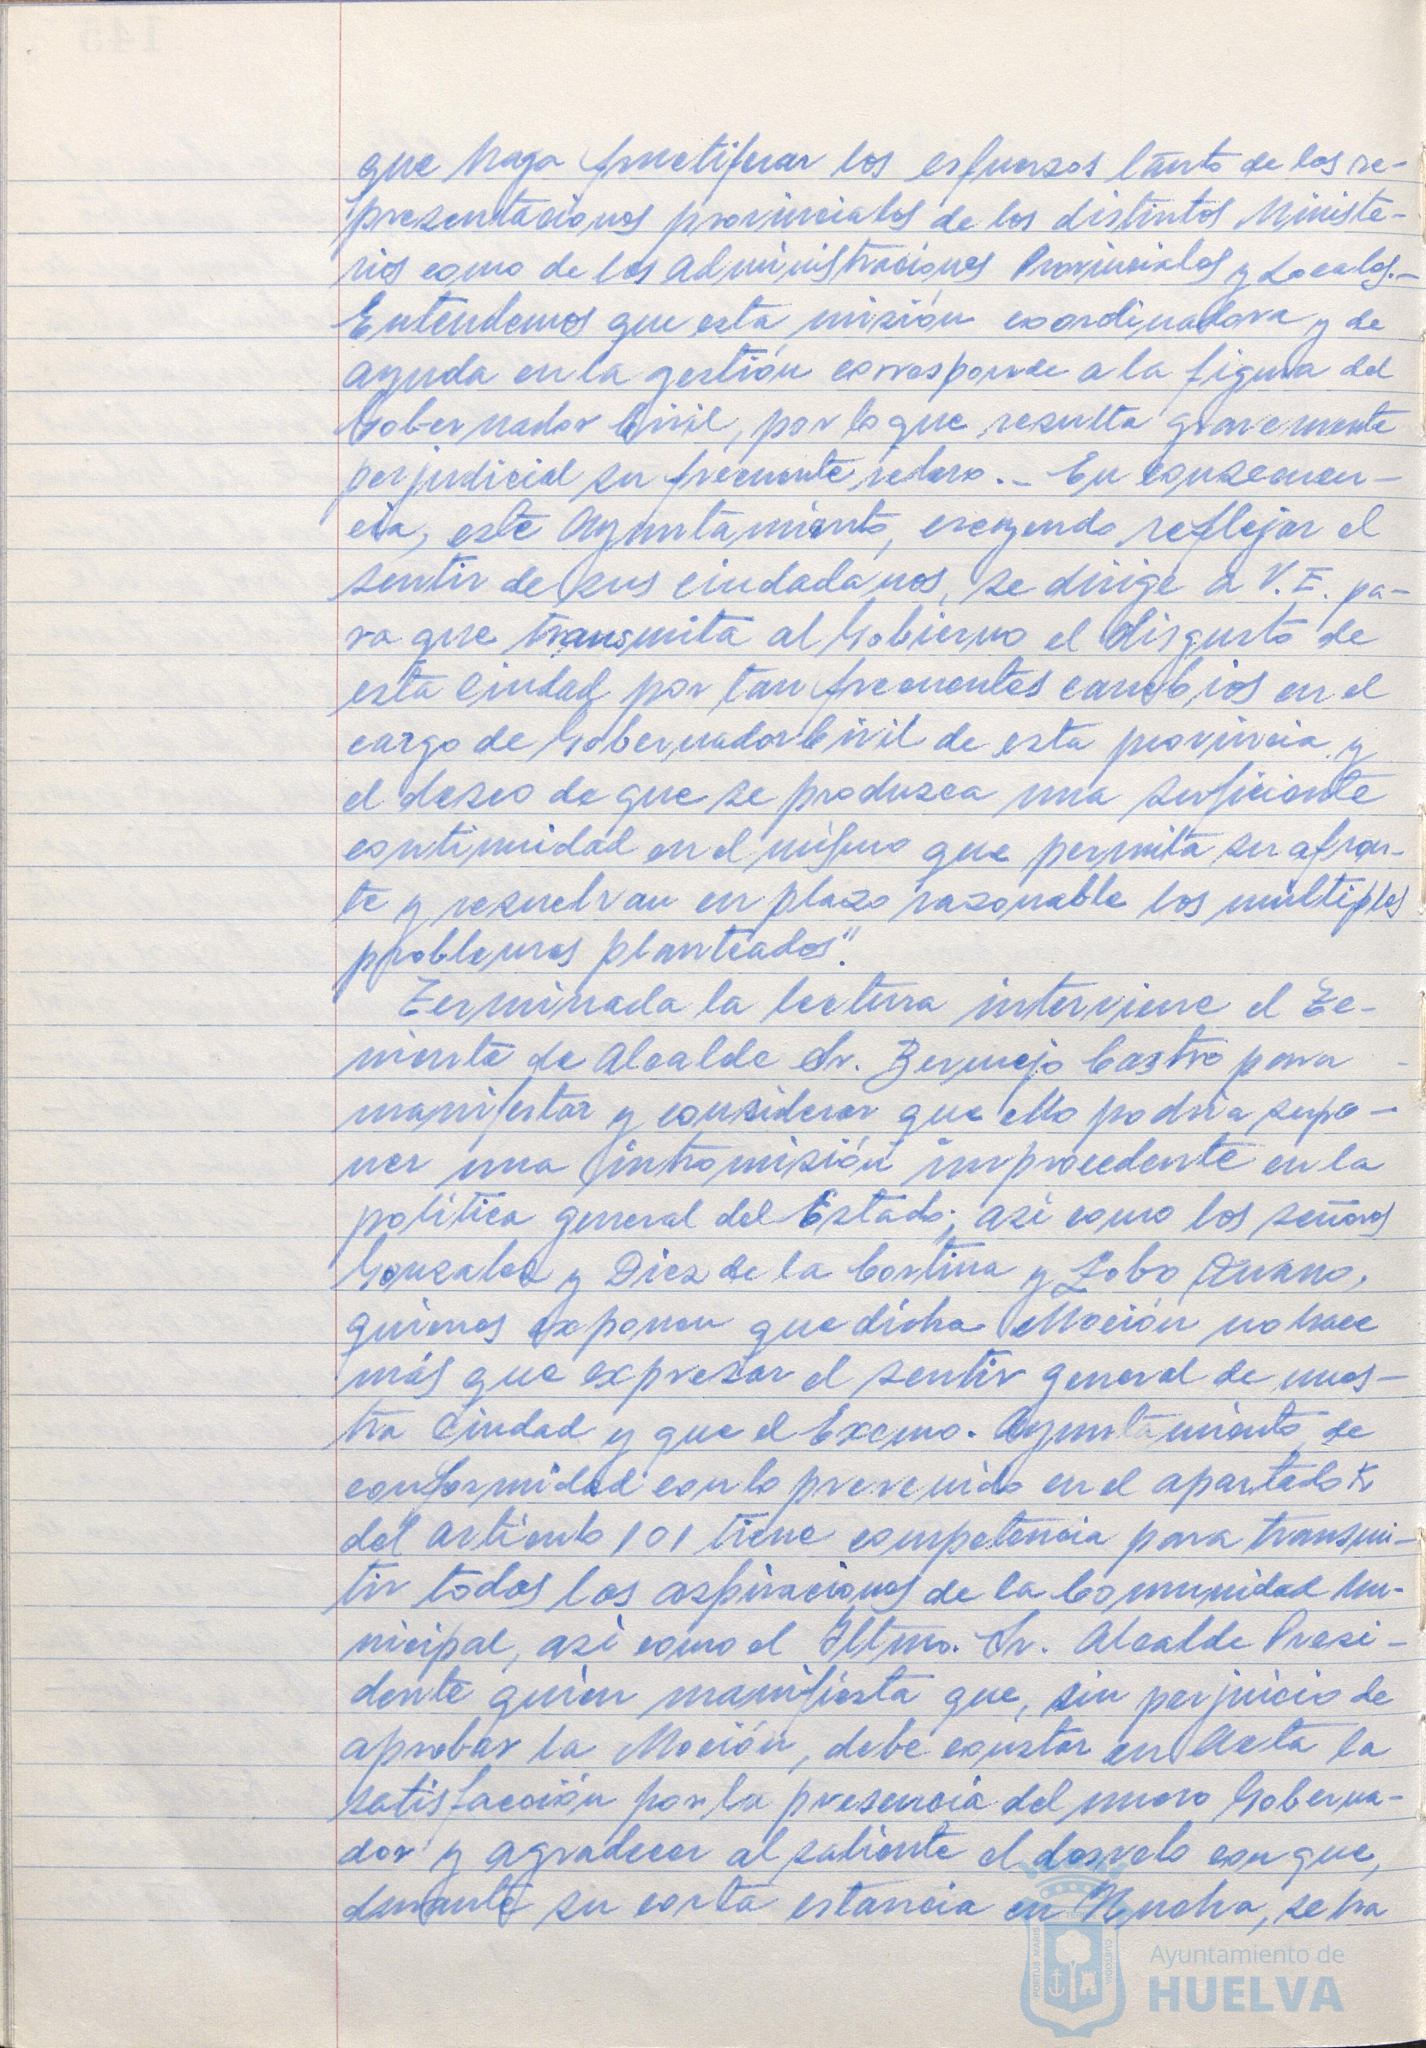 que haga fructificar los esfuerzos tanto de las re-
presentaciones provinciales de los distintos Ministe-
rios como de las Administraciones Provinciales y Locales.-
Entendemos que esta misión coordinadora y de
ayuda en la gestión corresponde a la figura del
Gobernador Civil, por lo que resulta gravemente
perjudicial su frecuente relevo.- En consecuen-
cia, este Ayuntamiento, creyendo reflejar el
sentir de sus ciudadanos, se dirige a V.E. pa-
ra que transmita al Gobierno el disgusto de
esta Ciudad por tan frecuentes cambios en el
cargo de Gobernador Civil de esta provincia y
el deseo de que se produzca una suficiente
continuidad en el mismo que permita se afron-
te y resuelvan en plazo razonable los múltiples
problemas planteados".
Terminada la lectura interviene el Te-
niente de Alcalde Sr. Bermejo Castro para
manifestar y considerar que ello podría supo-
ner una intromisión improcedente en la
política general del Estado; así como los señores
González y Díez de la Cortina y Lobo
quienes exponen que dicha Moción no hace
más que expresar el sentir general de nues-
tra Ciudad y que el Excmo. Ayuntamiento, de
conformidad con lo prevenido en el apartado K
del artículo 101 tiene competencia para transmi-
tir todas las aspiraciones de la Comunidad Mu-
nicipal, así como el Iltmo. Sr. Alcalde Presi-
dente quien manifiesta que, sin perjuicio de
aprobar la Moción, debe constar en Acta la
satisfacción por la presencia del nuevo Goberna-
dor y agradecer al saliente el desvelo con que,
durante su corta estancia en Huelva, se ha
PORTUS MARIS
CUSTODIA
Ayuntamiento de
HUELVA